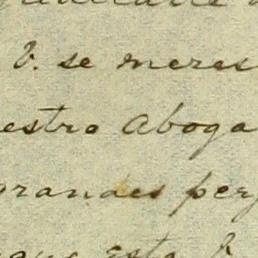 V. se meres
estro Aboga
grandes perj
que esta V.